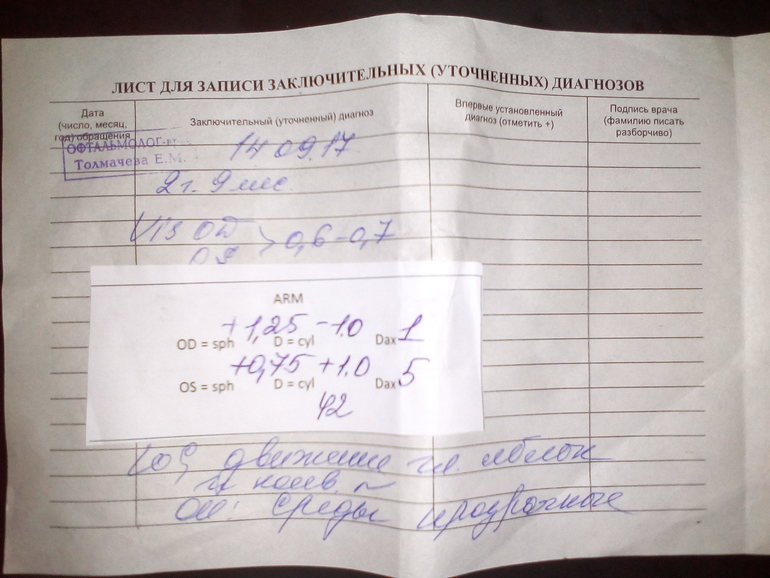 ЛИСТ ДЛЯ ЗАПИСИ ЗАКЛЮЧИТЕЛЬНЫХ (УТОЧНЕННЫХ) ДИАГНОЗОВ
Дата
(число, месяц,
год) обращения
Заключительный (уточненный) диагноз
Впервые установленный
диагноз (отметить +)
Подпись врача
(фамилию писать
разборчиво)
ОФТАЛЬМОЛОГ
Толмачева Е.М.
14 09.17
2 г. 9 мес
Vis OD
OS
0,6-0,7
ARM
+1,25 -1.0 1
OD = sph D = cyl Dax
+0,75 +1.0 5
OS = sph D = cyl Dax
42
движение гл. яблок
среды прозрачные